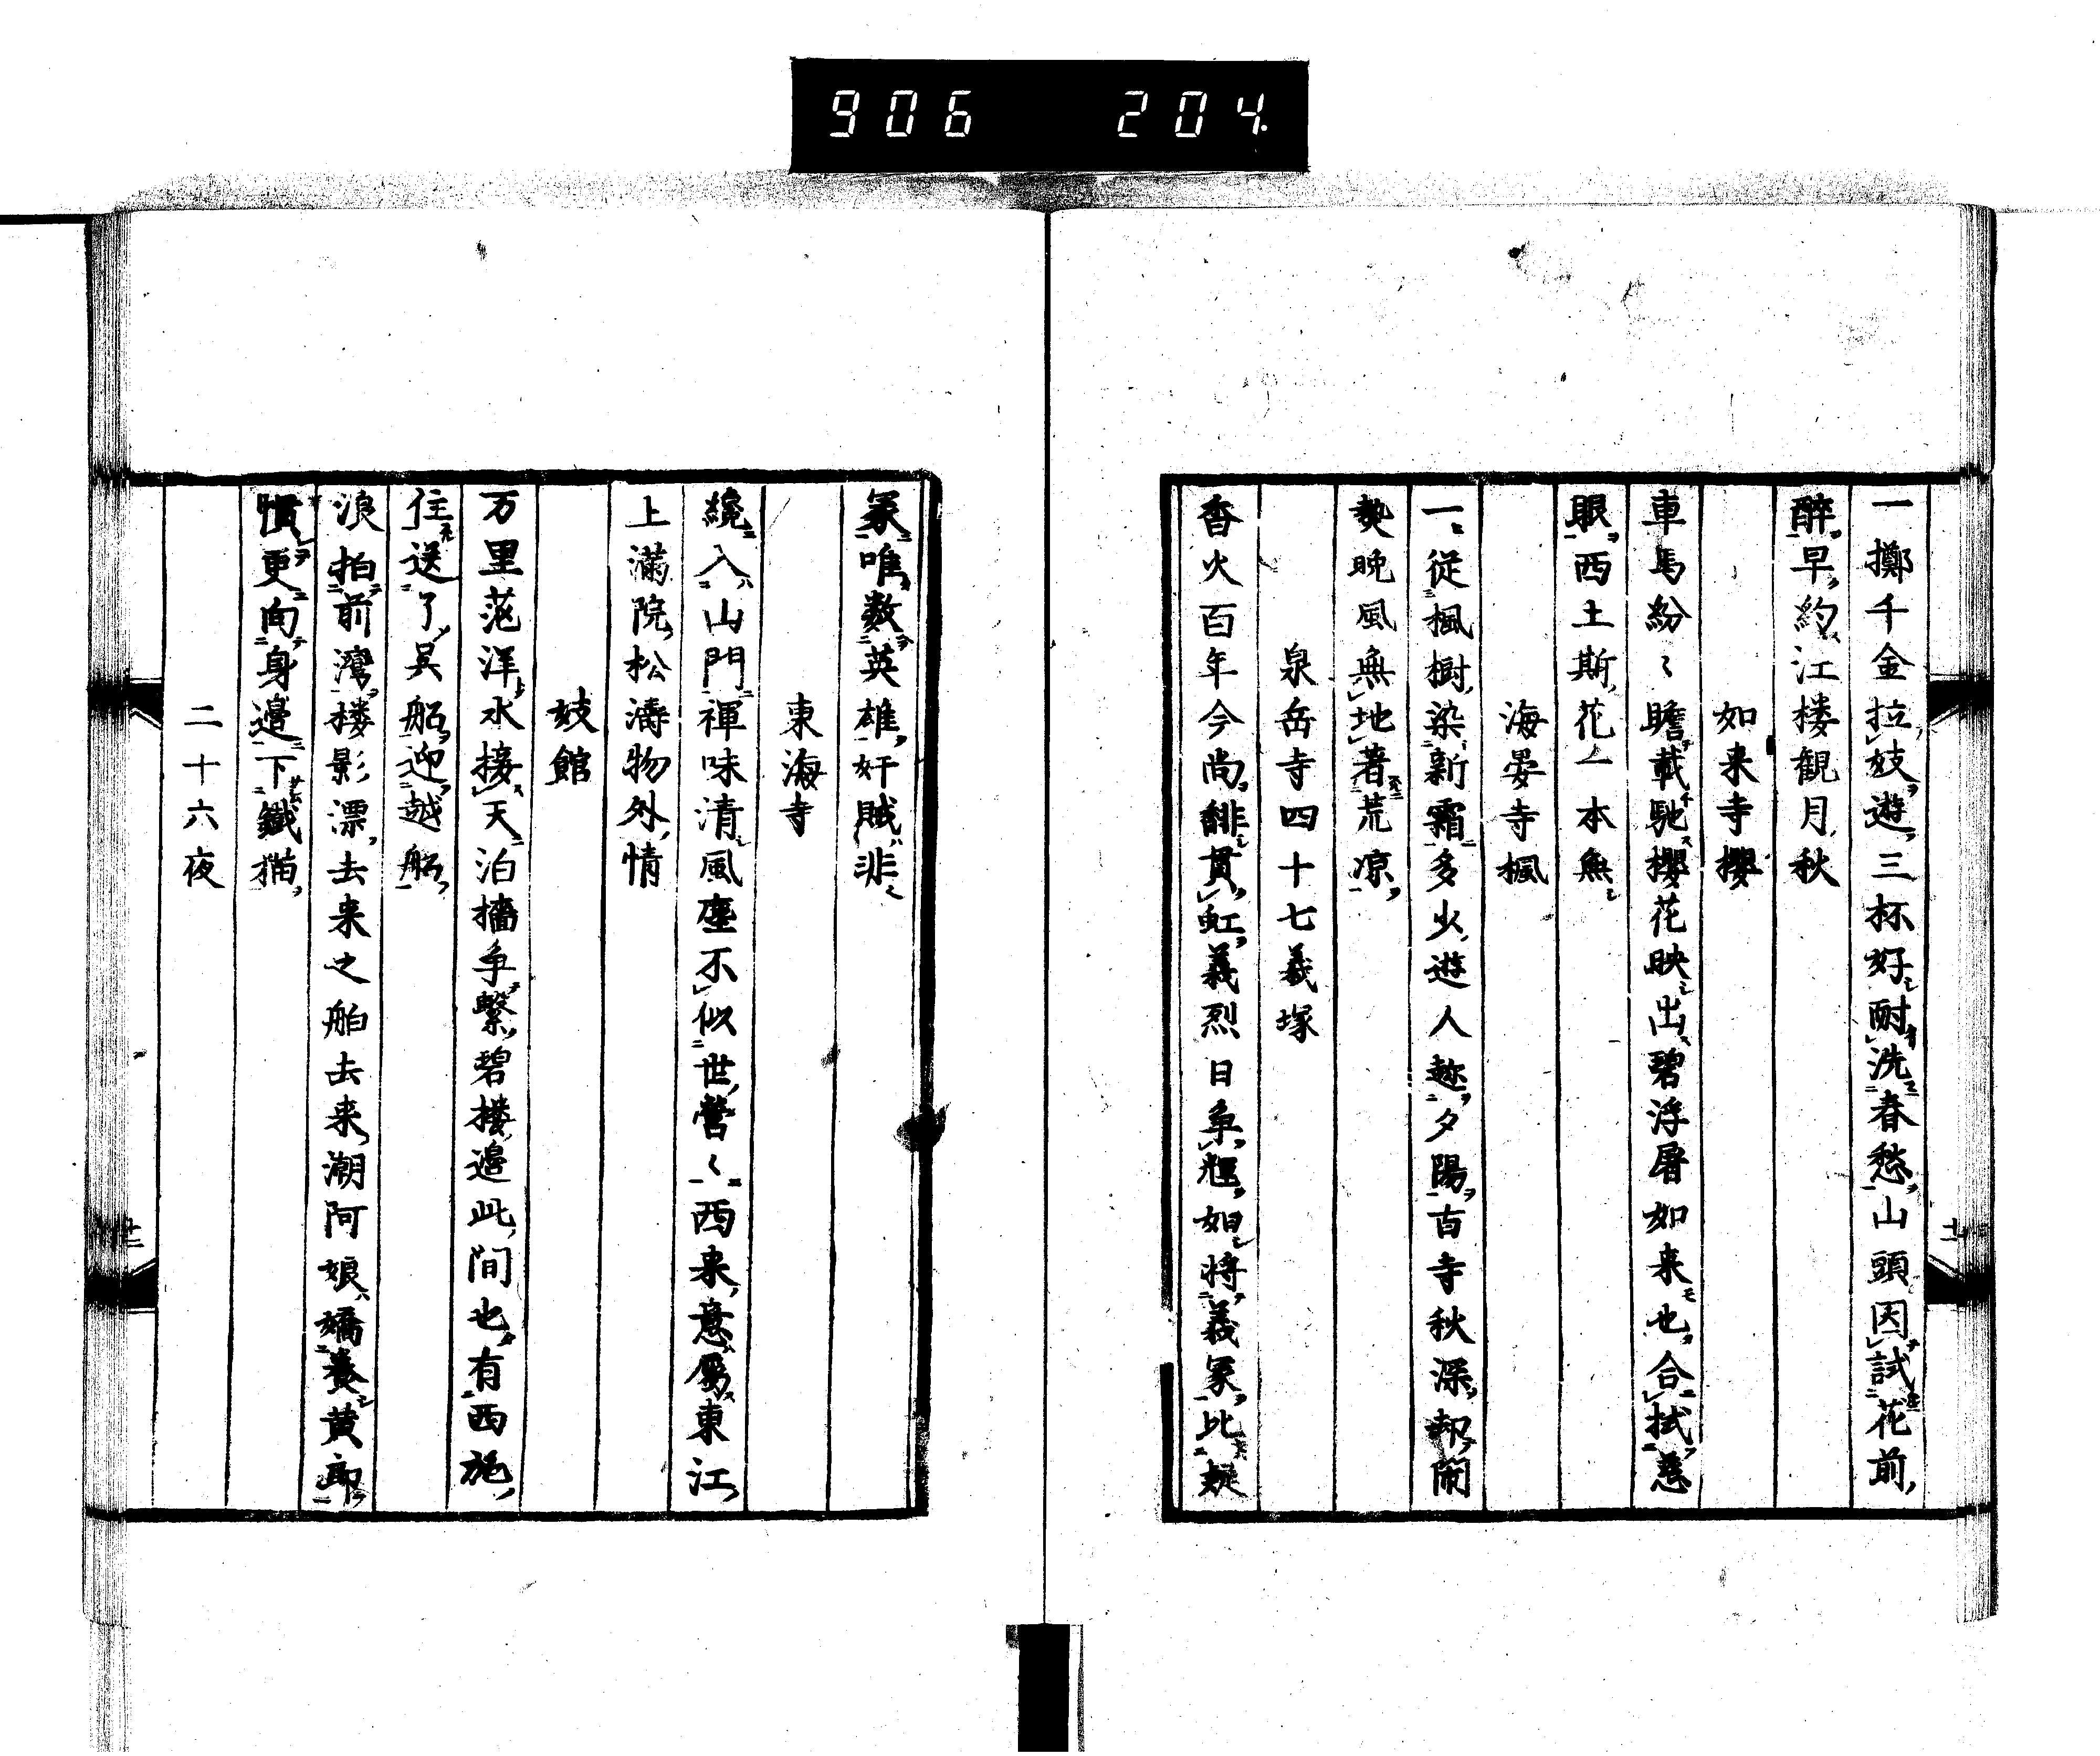 906 204.
一擲千金拉妓遊三杯好耐洗春愁山頭因試花前
醉早約江楼観月秋
如来寺櫻
車馬紛〻瞻載馳櫻花映出碧浮屠如来也合拭慈
眼西土斯花一本無
海晏寺楓
一従楓樹染新霜多少遊人趂夕陽古寺秋深却閙
熱晩風無地著荒凉
泉岳寺四十七義塚
香火百年今尚緋貫虹義烈日争輝如将義冢比疑
冢唯数英雄奸賊非
東海寺
纔入山門禅味清風塵不似世營〻西来意属東江
上満院松濤物外情
妓館
万里茫洋水接天泊檣争繋碧楼邉此間也有西施
住送了呉船迎越船
浪拍前湾楼影漂去来之舶去来潮阿娘嬌養黄郎
慣更向身邉下鐵猫
二十六夜